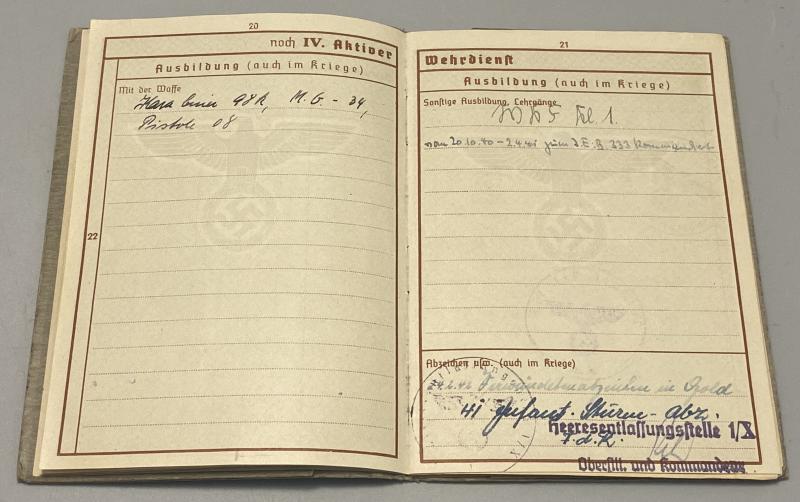 20
noch IV. Aktiver
Ausbildung (auch im Kriege)
Mit der Waffe
Karabiner 98k, M.G. - 34,
Pistole 08
22
21
Wehrdienst
Ausbildung (auch im Kriege)
Sonstige Ausbildung, Lehrgänge
Kl 1.
von 20.10.40 - 2.4.41 zum J.E.B. 333 kommandiert
Abzeichen usw. (auch im Kriege)
24.2.42 Verwundetenabzeichen in Gold
41 Infant. Sturm - Abz.
Heeresentlassungsstelle 1/X
F.d.R.
Oberstlt. und Kommandeur